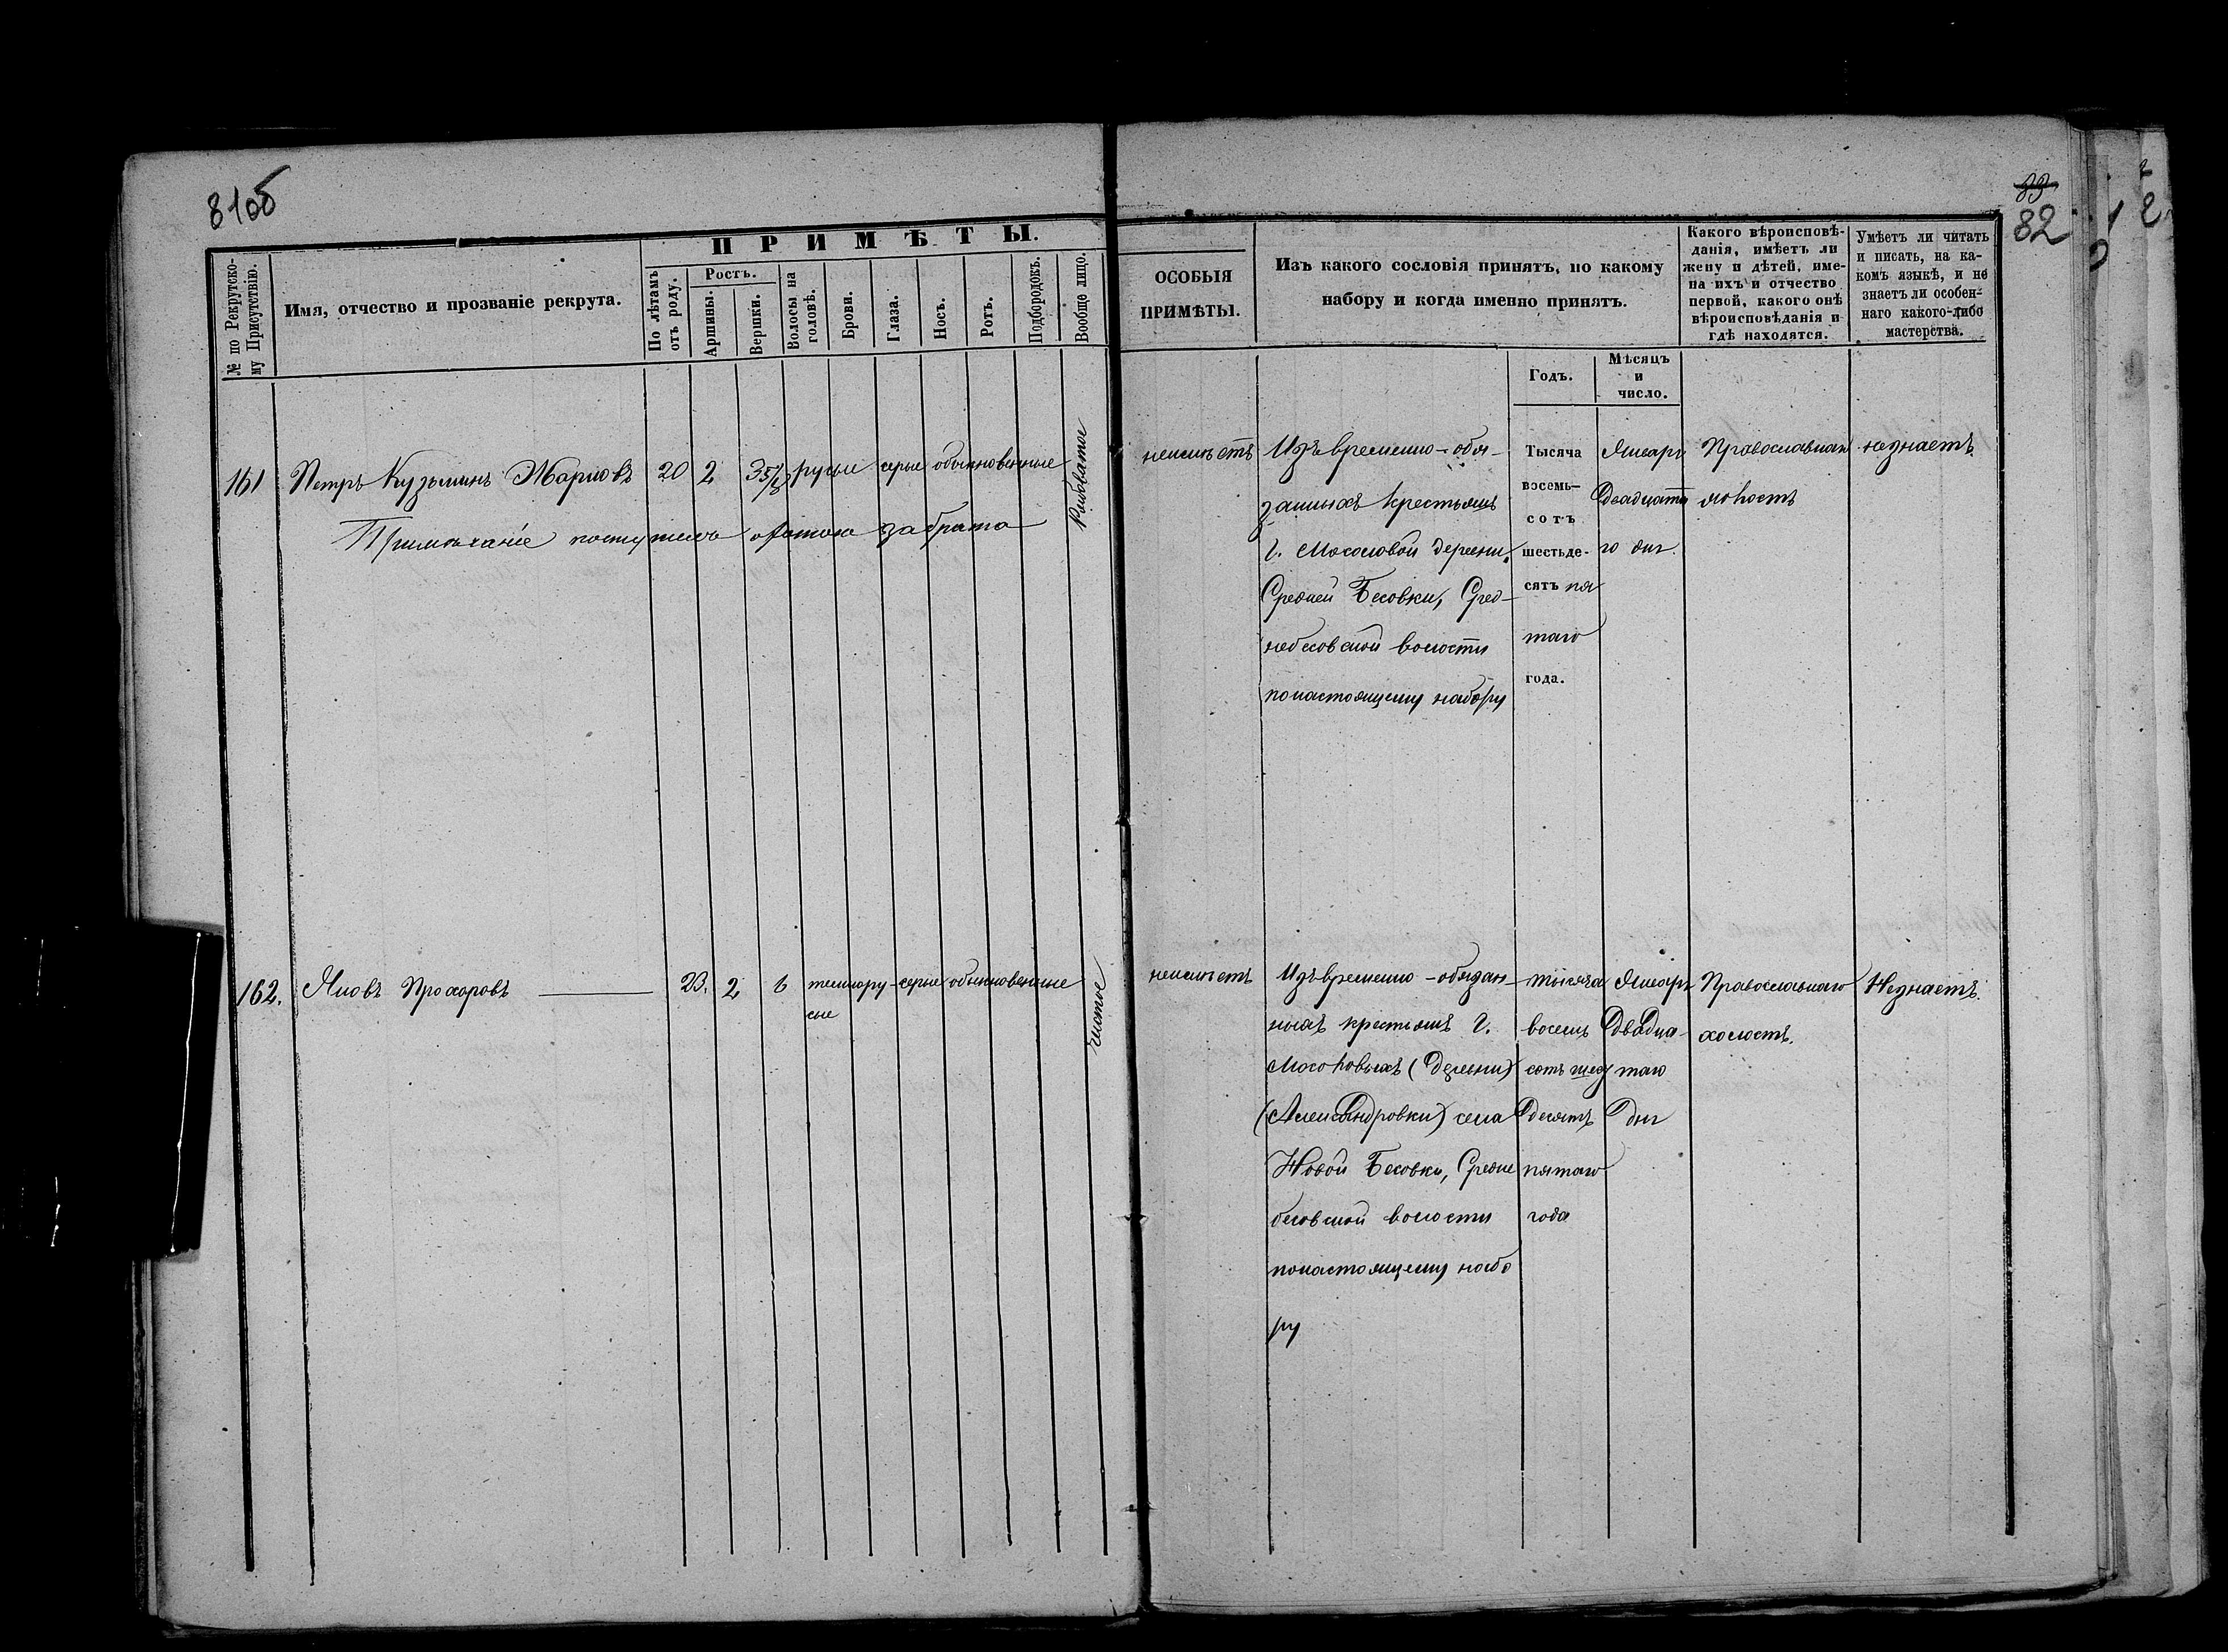 81об
83
82
ПРИМѢТЫ.
№ по Рекрутско-
му Присутствію.
Имя, отчество и прозваніе рекрута.
По лѣтамъ
отъ роду.
Ростъ.
Аршины.
Вершки.
Волосы на
головѣ.
Брови.
Глаза.
Носъ.
Ротъ.
Подбородокъ.
Вообще лицо.
ОСОБЫЯ
ПРИМѢТЫ.
Изъ какого сословія принятъ, по какому
набору и когда именно принятъ.
Какого вѣроисповѣ-
данія, имѣетъ ли
жену и дѣтей, име-
на ихъ и отчество
первой, какого онѣ
вѣроисповѣданія и
гдѣ находятся.
Умѣетъ ли читать
и писать, на ка-
комъ языкѣ, и не
знаетъ ли особен-
наго какого-либо
мастерства.
Годъ.
Мѣсяцъ
и
число.
161 Петръ Кузьминъ Жарковъ 20 2 3 5/8 русые серые обыкновенные Рябоватое
Примѣчаніе поступилъ охотою за брата
неимѣетъ
Изъ временно-обя-
занныхъ крестьянъ
Г. Мосоловой деревни
Средней Бесовки, Сред-
небесовской волости
понастоящему набору
Тысяча
восемь-
сотъ
шестьде-
сятъ пя
таго
года.
Январь
Двадцата
го дня.
Православнаго
холостъ
незнаетъ
162. Яковъ Прохоровъ 23. 2 6 темнору- серые обыкновенные чистое
сые
неимѣетъ
Изъ временно-обязан-
ныхъ крестьянъ Г.
Мосоловыхъ (деревни)
(Александровки) села
Новой Бесовки, Средне
бесовской волости
понастоящему набо
ру
тысяча
восемь
сотъ шез
десятъ
пятаго
года
Январь
двадца-
таго
дня
Православнаго
холостъ.
Незнаетъ.